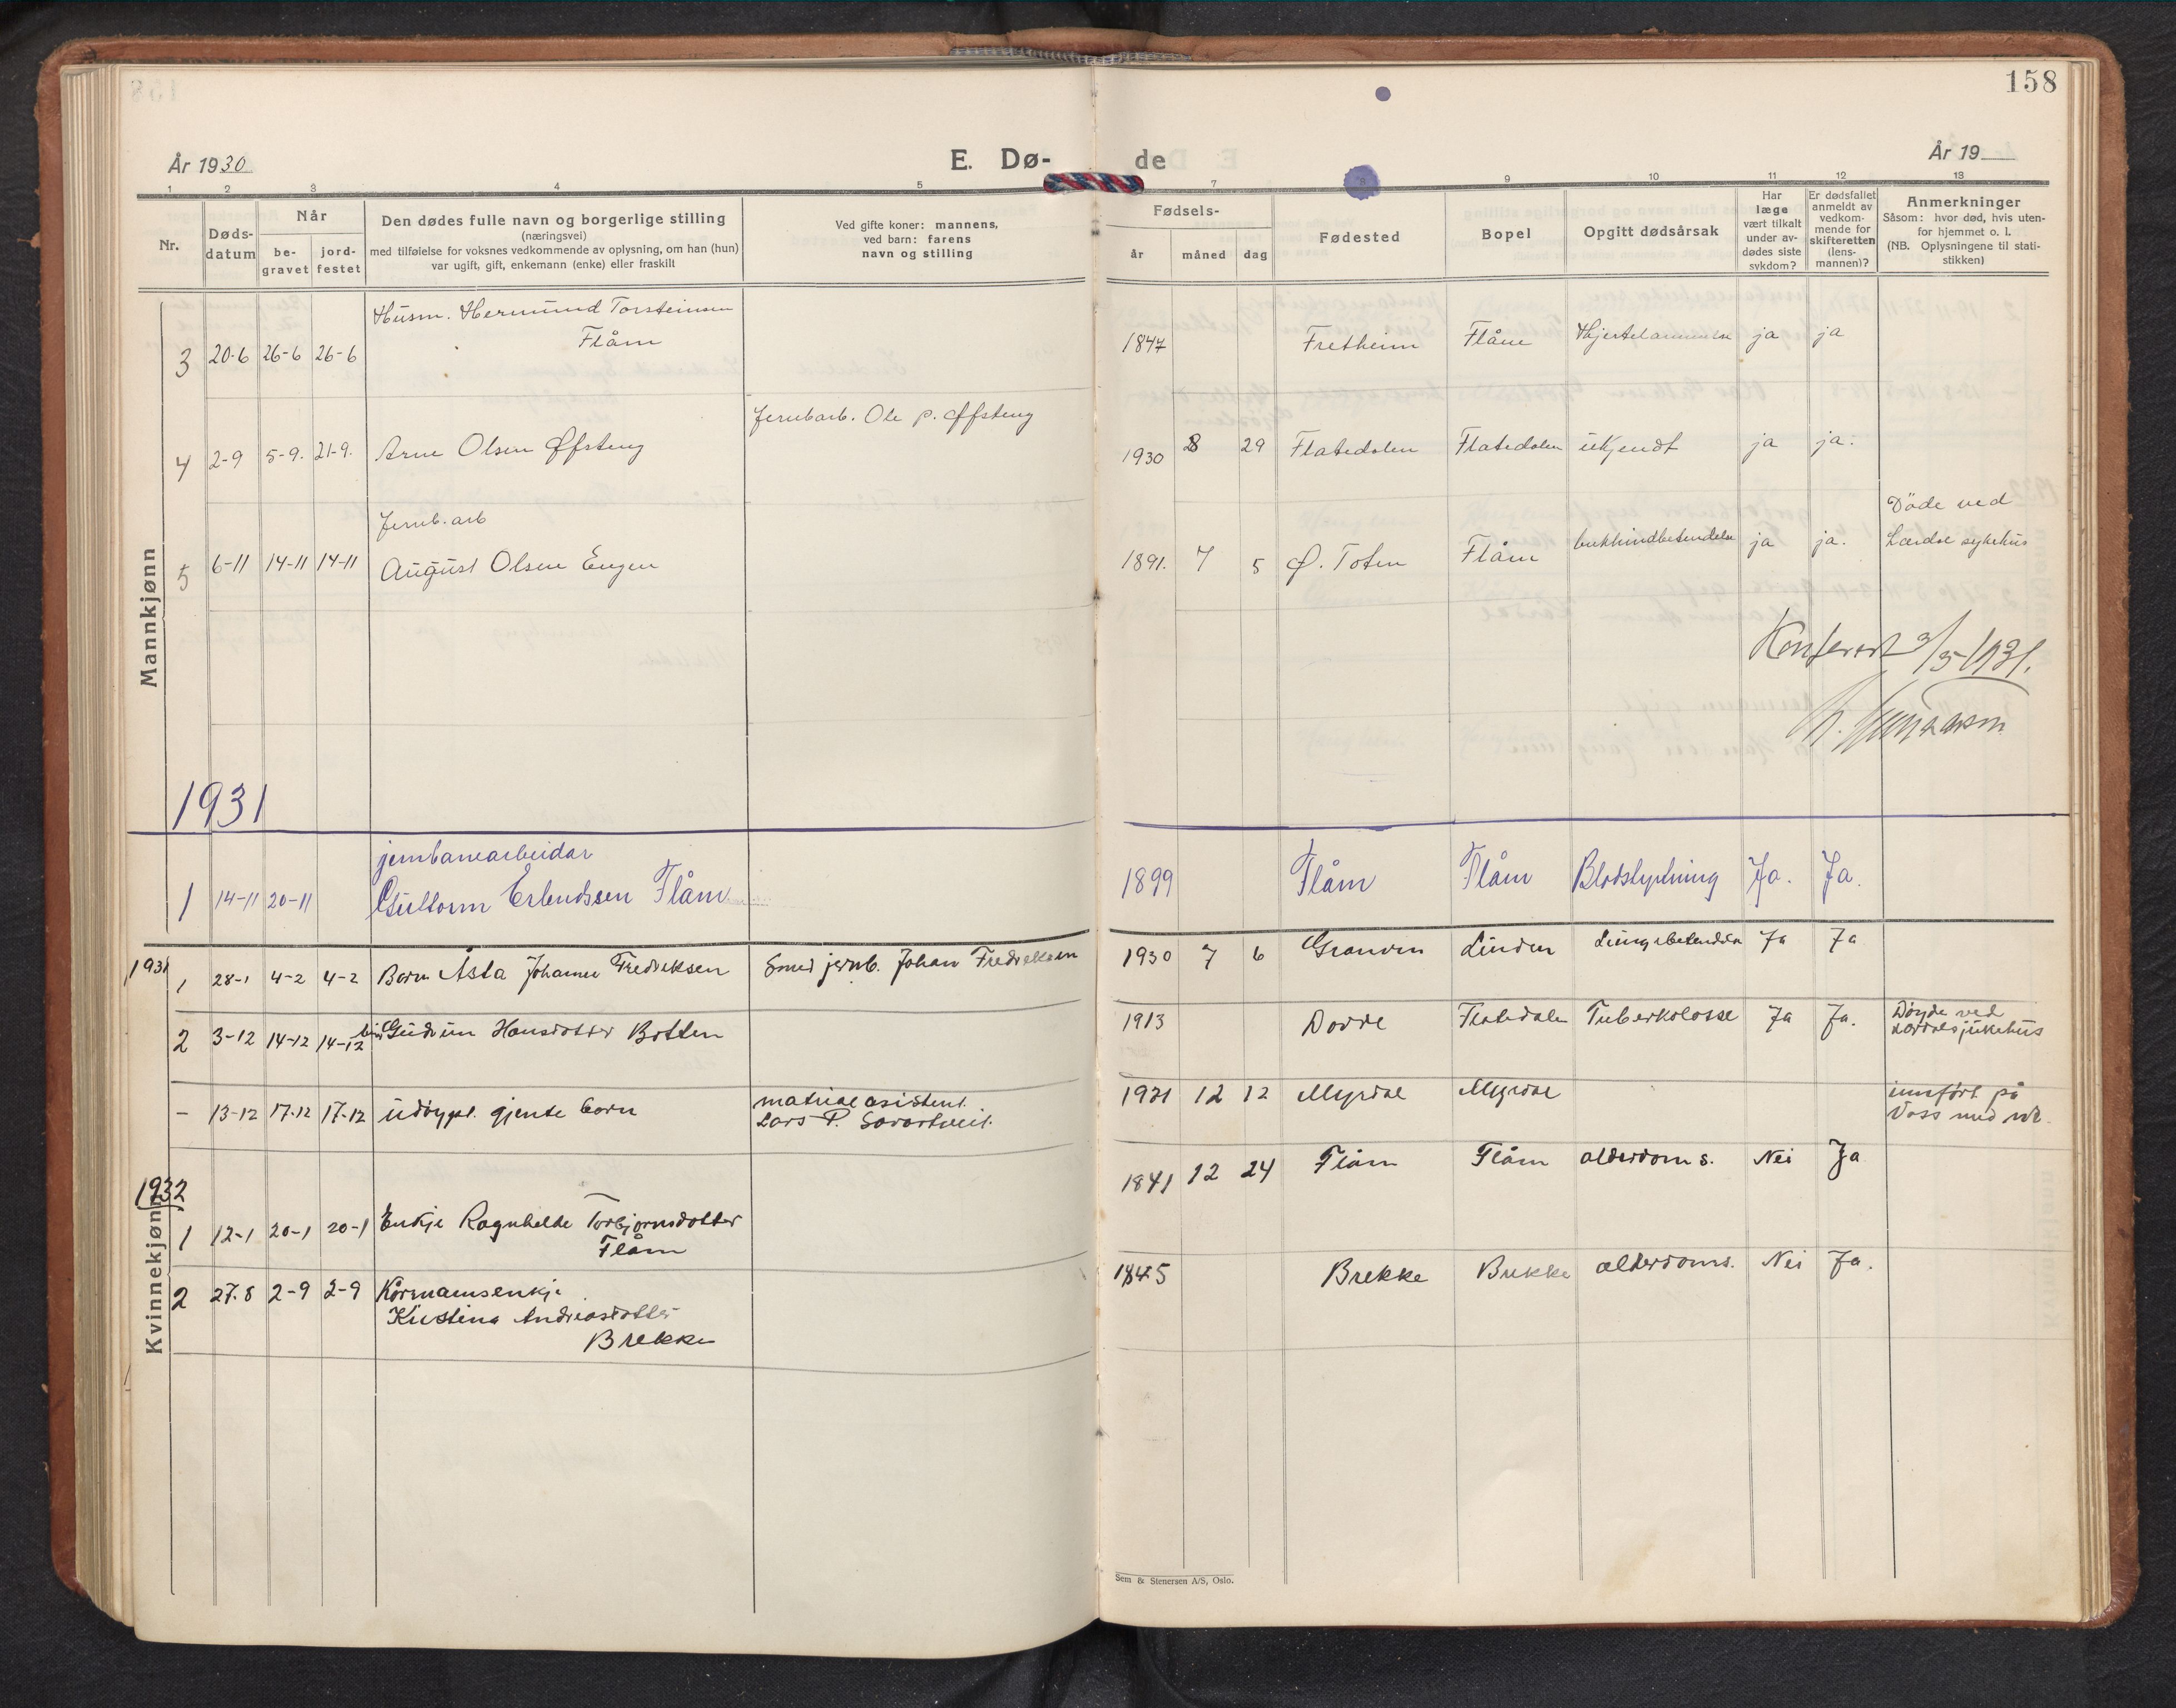 158
År 1930
E. Dø- de
År 19
1 2 3 4 5 7 8 9 10 11 12 13
Nr.
Døds-
datum
Når
be-
gravet
jord-
festet
Den dødes fulle navn og borgerlige stilling
(næringsvei)
med tilføielse for voksnes vedkommende av oplysning, om han (hun)
var ugift, gift, enkemann (enke) eller fraskilt
Ved gifte koner: mannens,
ved barn: farens
navn og stilling
Fødsels-
år måned dag
Fødested
Bopel
Opgitt dødsårsak
Har
læge
vært tilkalt
under av-
dødes siste
sykdom?
Er dødsfallet
anmeldt av
vedkom-
mende for
skifteretten
(lens-
mannen)?
Anmerkninger
Såsom: hvor død, hvis uten-
for hjemmet o. l.
(NB. Oplysningene til stati-
stikken)
Mannkjønn
Husm. Hermund Torsteinsen
Flåm
3 20-6 26-6 26-6 1847 Fretheim Flåm Hjertelammelse ja ja
Jernbarb. Ole P. Øfsteng
4 2-9 5-9. 21-9. Arne Olsen Øfsteng 1930 8 29 Flatedalen Flatedalen ukjendt ja ja.
Jernb. arb
Døde ved
5 6-11 14-11 14-11 August Olsen Engen 1891. 7 5 Ø. Toten Flåm bukhindbetendelse ja ja. Lærdal sykehus
Konferert 3/5-1931.
1931
jernbanearbeidar
1 14-11 20-11 Guttorm Erlendssen Flåm 1899 Flåm Flåm Blodstyrtning Ja. Ja.
1931
1 28-1 4-2 4-2 Born Åsta Johanne Fredriksen Smed jernb. Johan Fredriksen 1930 7 6 Granvin Linden Lungebetendelse Ja Ja
2 3-12 14-12 14-12 Gudrun Hansdotter Botten 1913 Dovre Flatedalen Tuberkolose Ja Ja. Døyde ved
Lærdal sjukehus
- 13-12 17-12 17-12 udøypt. gjente born material asistent.
Lars P. 1931 12 12 Myrdal Myrdal innført på
Voss med nr.
1932
Kvinnekjønn
1 12-1 20-1 20-1 Enkje Ragnhilde Torbjørnsdotter
Flåm 1841 12 24 Flåm Flåm alderdoms. Nei Ja
2 27-8 2-9 2-9 Kårmannsenkje
Kristina Andreasdotter
Brekke 1845 Brekke Brekke alderdoms. Nei Ja.
Sem & Stenersen A/S, Oslo.